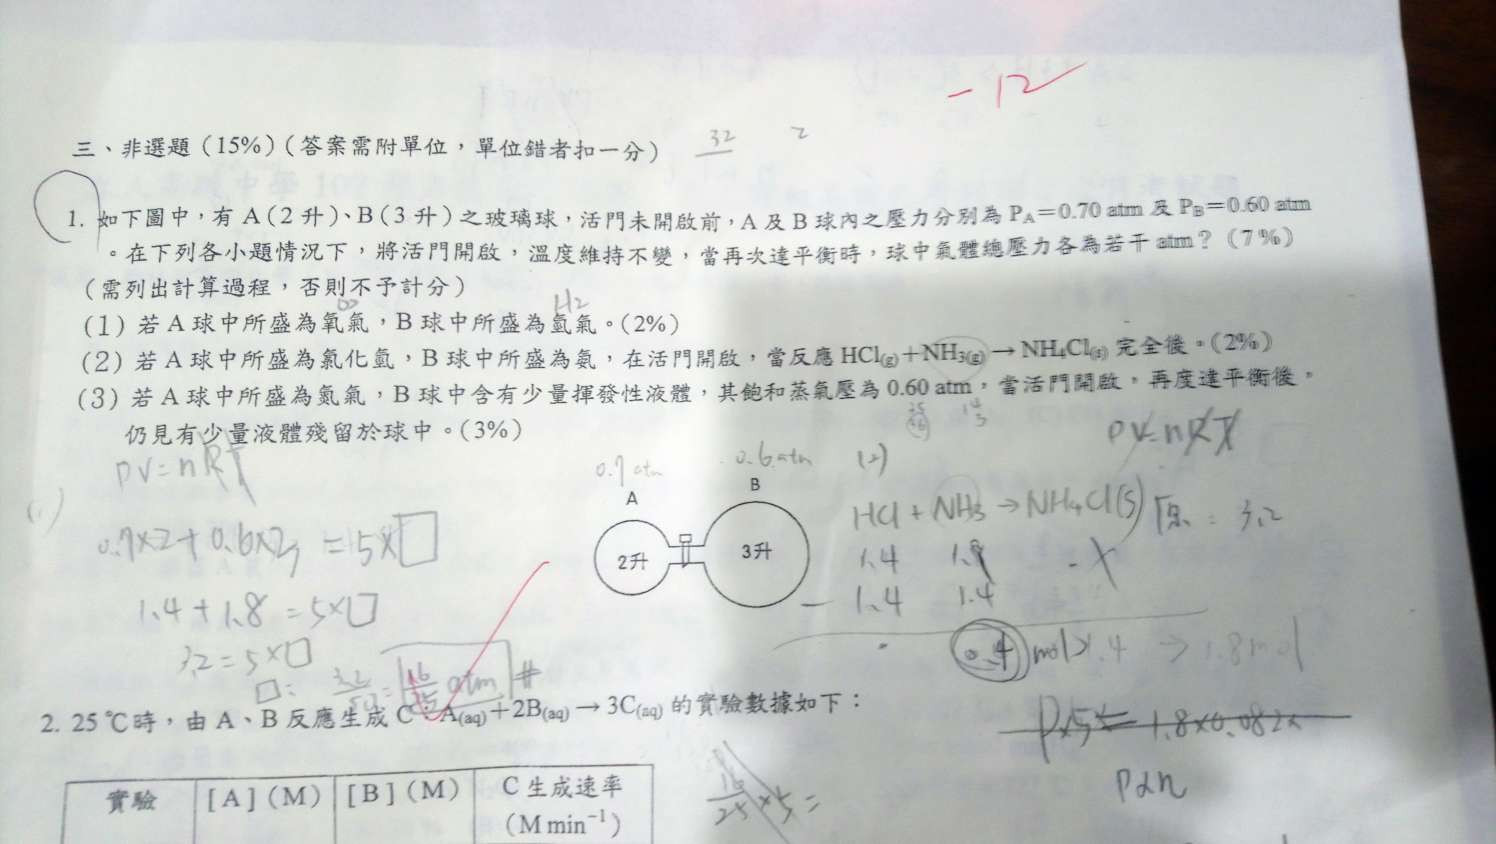 -12
三、非選題（15%）（答案需附單位，單位錯者扣一分）
32 2
1. 如下圖中，有 A（2 升）、B（3 升）之玻璃球，活門未開啟前，A 及 B 球內之壓力分別為 PA＝0.70 atm 及 PB＝0.60 atm
。在下列各小題情況下，將活門開啟，溫度維持不變，當再次達平衡時，球中氣體總壓力各為若干 atm？（7%）
（需列出計算過程，否則不予計分）
H2
（1）若 A 球中所盛為氧氣，B 球中所盛為氫氣。（2%）
（2）若 A 球中所盛為氯化氫，B 球中所盛為氨，在活門開啟，當反應 HCl(g)＋NH3(g)→NH4Cl(s) 完全後。（2%）
（3）若 A 球中所盛為氮氣，B 球中含有少量揮發性液體，其飽和蒸氣壓為 0.60 atm，當活門開啟，再度達平衡後，
仍見有少量液體殘留於球中。（3%）
PV=nRT
PV=nRT
(1)
0.7 atm
0.6 atm
(2)
A
B
HCl + NH3 → NH4Cl(s) 原: 3.2
0.7×2+0.6×3 =5×□
2升
3升
1.4 1.8 - x
1.4+1.8=5×□
- 1.4 1.4
3.2=5×□
0.4 mol → 1.8mol
□= 16/25 atm #
2. 25 ℃時，由 A、B 反應生成 C：A(aq)＋2B(aq)→3C(aq) 的實驗數據如下：
P×5 = 1.8×0.082×
P∝n
16/25 ×5=
實驗 [A]（M） [B]（M） C 生成速率
（M min⁻¹）